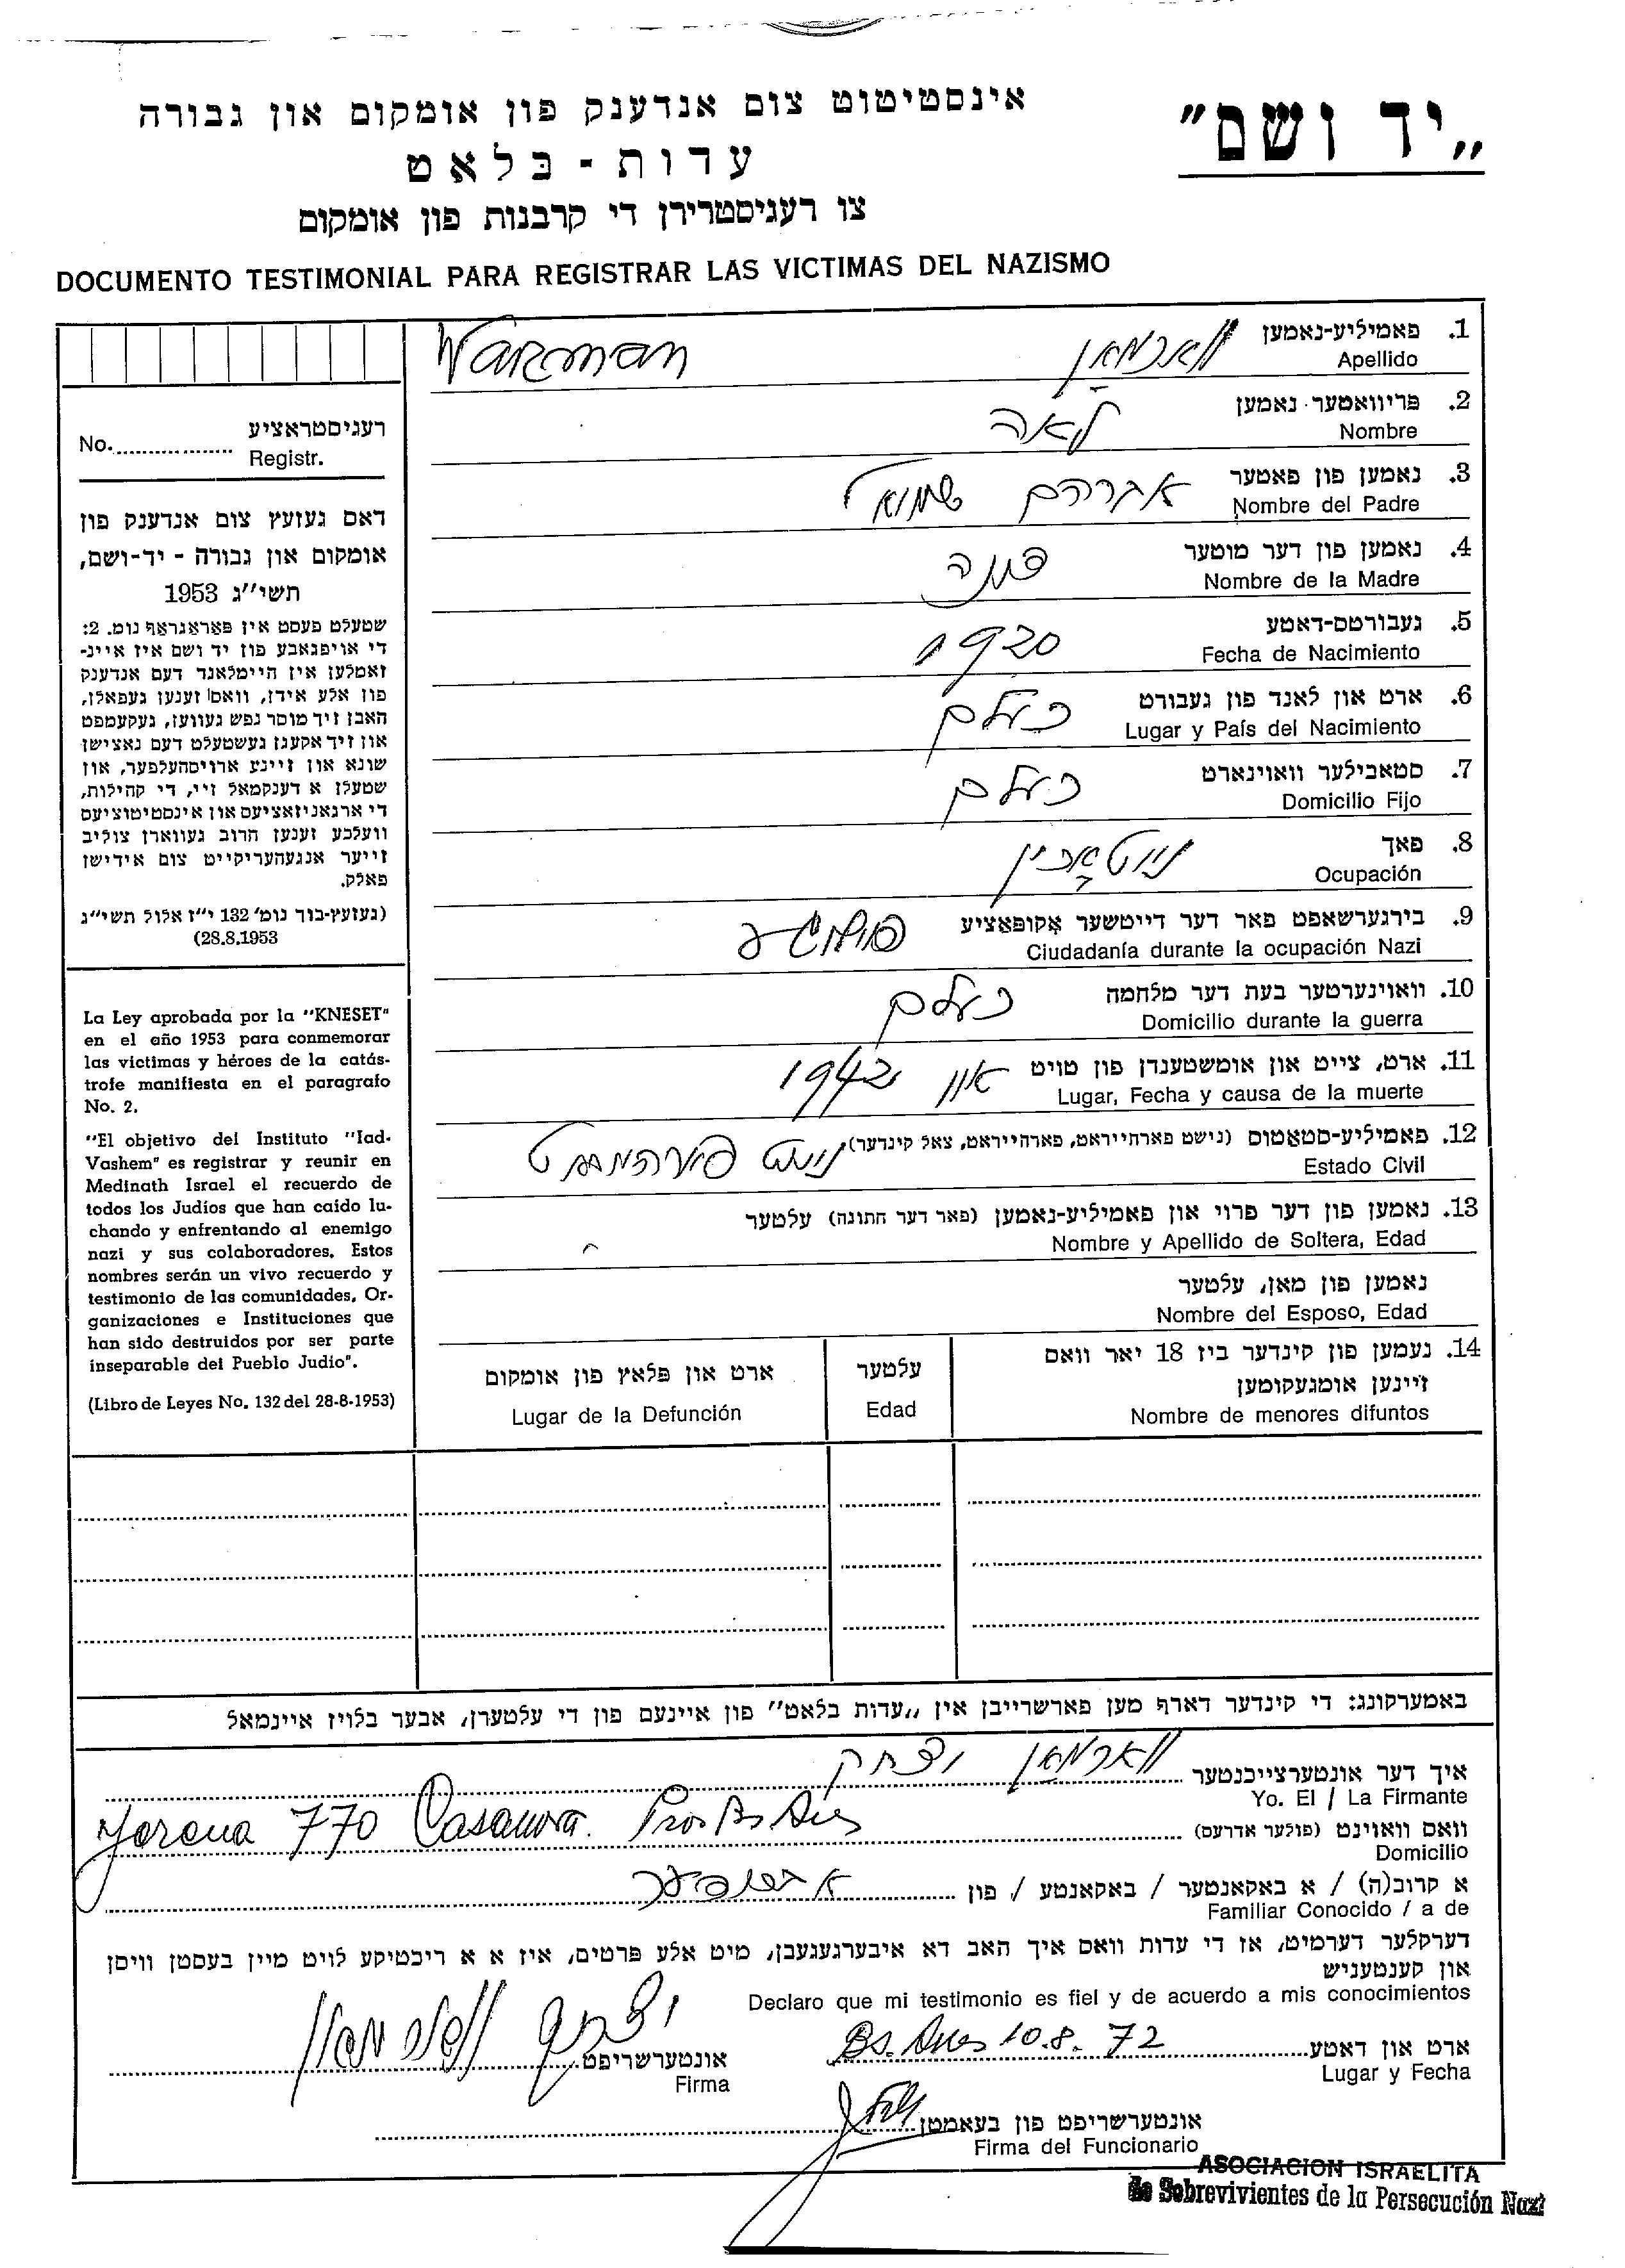 „יד ושם"
אינסטיטוט צום אנדענק פון אומקום און גבורה
עדות - בלאט
צו רעגיסטרירן די קרבנות פון אומקום
DOCUMENTO TESTIMONIAL PARA REGISTRAR LAS VICTIMAS DEL NAZISMO
1. פאמיליע-נאמען ווארמאן Warman
Apellido
2. פריוואטער נאמען לאה
Nombre
3. נאמען פון פאטער אברהם שמואל
Nombre del Padre
4. נאמען פון דער מוטער
Nombre de la Madre
5. געבורטס-דאטע 1920
Fecha de Nacimiento
6. ארט און לאנד פון געבורט כעלם
Lugar y País del Nacimiento
7. סטאבילער וואוינארט כעלם
Domicilio Fijo
8. פאך
Ocupación
9. בירגערשאפט פאר דער דייטשער אָקופּאַציע פוילישע
Ciudadanía durante la ocupación Nazi
10. וואוינערטער בעת דער מלחמה כעלם
Domicilio durante la guerra
11. ארט, צייט און אומשטענדן פון טויט אין 1942
Lugar, Fecha y causa de la muerte
12. פאמיליע-סטאטוס (נישט פארהייראט, פארהייראט, צאל קינדער) נישט פארהייראט
Estado Civil
13. נאמען פון דער פרוי און פאמיליע-נאמען (פאר דער חתונה) עלטער
Nombre y Apellido de Soltera, Edad
נאמען פון מאן, עלטער
Nombre del Esposo, Edad
14. נעמען פון קינדער ביז 18 יאר וואס
זיינען אומגעקומען
Nombre de menores difuntos
עלטער
Edad
ארט און פלאץ פון אומקום
Lugar de la Defunción
רעגיסטראציע
No. Registr.
דאס געזעץ צום אנדענק פון
אומקום און גבורה - יד-ושם,
תשי״ג 1953
שטעלט פעסט אין פאראגראף נומ. 2:
די אויפגאבע פון יד ושם איז איינ-
זאמלען אין היימלאנד דעם אנדענק
פון אלע אידן, וואס זענען געפאלן,
האבן זיך מוסר נפש געווען, געקעמפט
און זיך אקעגן געשטעלט דעם נאצישן
שונא און זיינע ארויסהעלפער, און
שטעלן א דענקמאל זיי, די קהילות,
די ארגאניזאציעס און אינסטיטוציעס
וועלכע זענען חרוב געווארן צוליב
זייער אנגעהעריקייט צום אידישן
פאלק.
(געזעץ-בוך נומ' 132 י״ז אלול תשי״ג
28.8.1953)
La Ley aprobada por la "KNESET"
en el año 1953 para conmemorar
las víctimas y héroes de la catás-
trofe manifiesta en el paragrafo
No. 2.
"El objetivo del Instituto "Iad-
Vashem" es registrar y reunir en
Medinath Israel el recuerdo de
todos los Judíos que han caído lu-
chando y enfrentando al enemigo
nazi y sus colaboradores. Estos
nombres serán un vivo recuerdo y
testimonio de las comunidades, Or-
ganizaciones e Instituciones que
han sido destruidos por ser parte
inseparable del Pueblo Judío".
(Libro de Leyes No. 132 del 28-8-1953)
באמערקונג: די קינדער דארף מען פארשרייבן אין „עדות בלאט" פון איינעם פון די עלטערן, אבער בלויז איינמאל
איך דער אונטערצייכנטער ווארמאן יצחק
Yo. El / La Firmante
וואס וואוינט (פולער אדרעס) 770 Casanova. Prov Bs Aires
Domicilio
א קרוב(ה) / א באקאנטער / באקאנטע / פון
Familiar Conocido / a de
דערקלער דערמיט, אז די עדות וואס איך האב דא איבערגעגעבן, מיט אלע פרטים, איז א א ריכטיקע לויט מיין בעסטן וויסן
און קענטעניש
Declaro que mi testimonio es fiel y de acuerdo a mis conocimientos
ארט און דאטע Bs. Aires 10.8.72
Lugar y Fecha
אונטערשריפט יצחק ווארמאן
Firma
אונטערשריפט פון באאמטן
Firma del Funcionario
ASOCIACION ISRAELITA
de Sobrevivientes de la Persecución Nazi